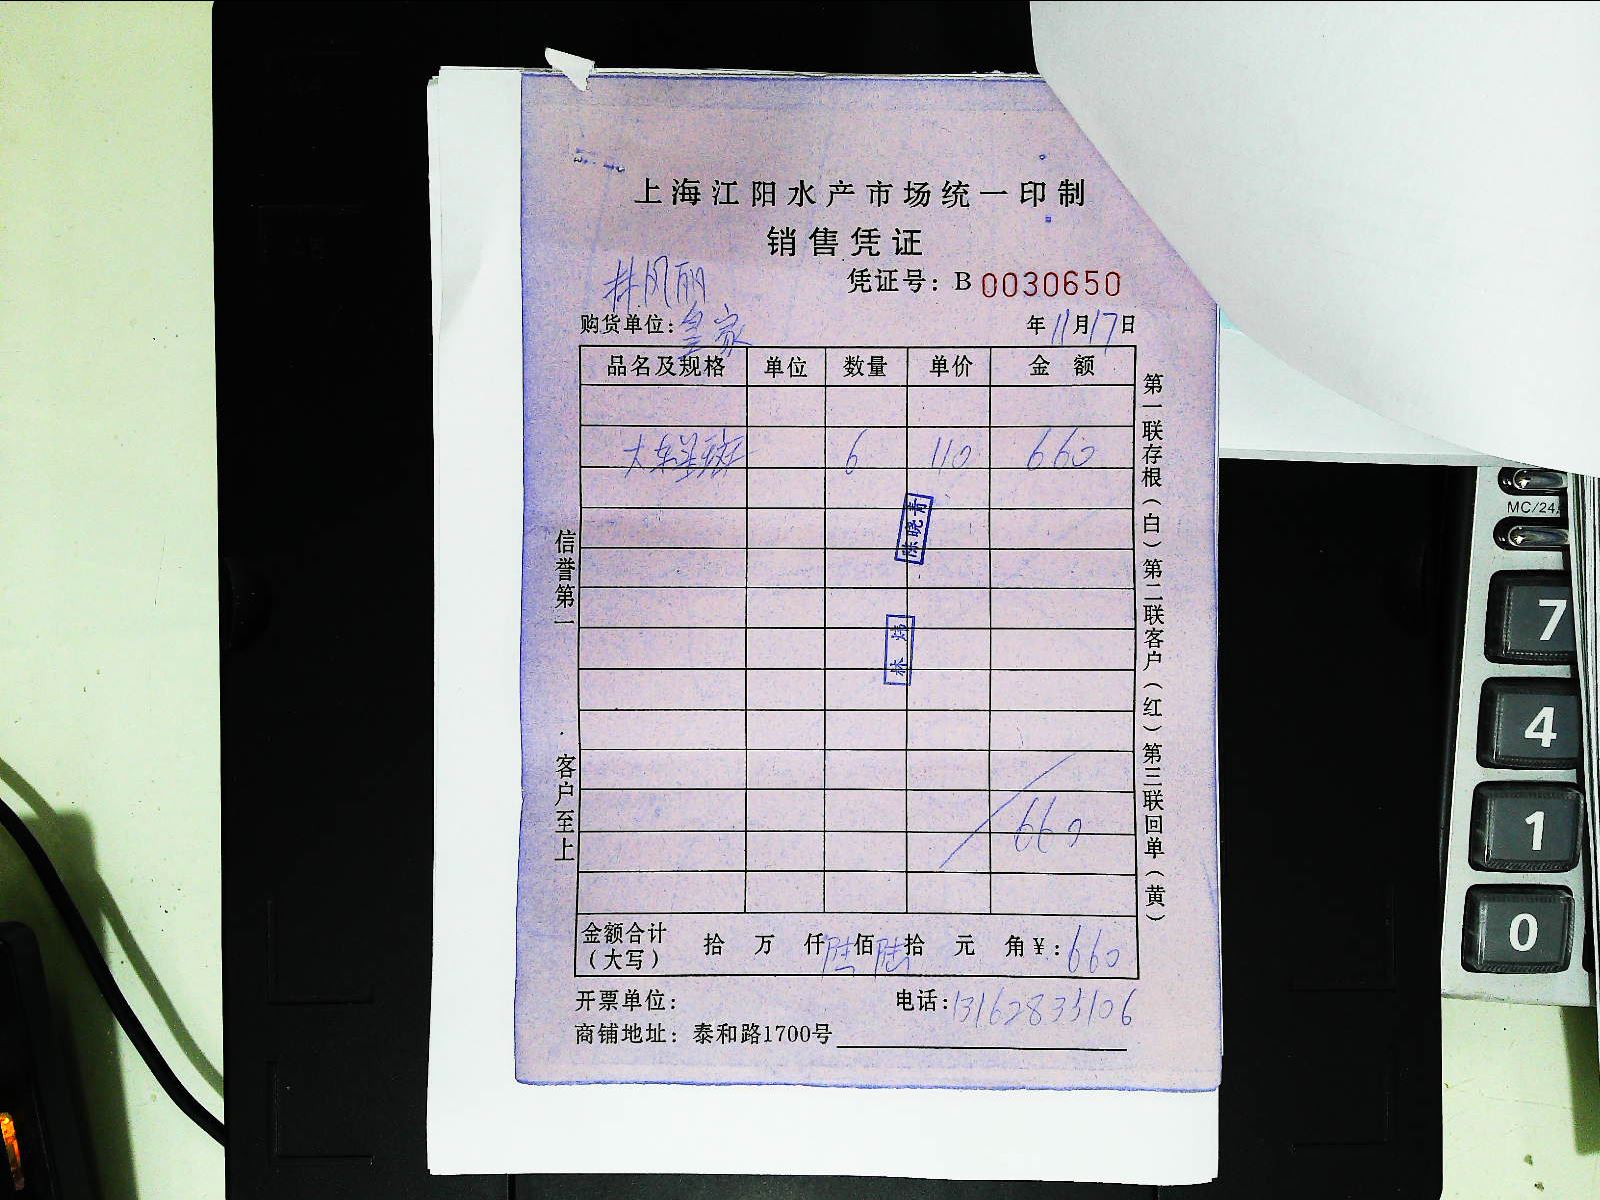 上海江阳水产市场统一印制
销售凭证
林凤丽
凭证号：B 0030650
购货单位：皇家
年11月17日
品名及规格 单位 数量 单价 金额
大东星斑 6 110 660
陈晓青
林炜
660
金额合计（大写） 拾 万 仟陆佰陆拾 元 角￥：660
开票单位：
电话：13162835106
商铺地址：泰和路1700号
信誉第一 客户至上
第一联存根（白）第二联客户（红）第三联回单（黄）
MC/24
7
4
1
0